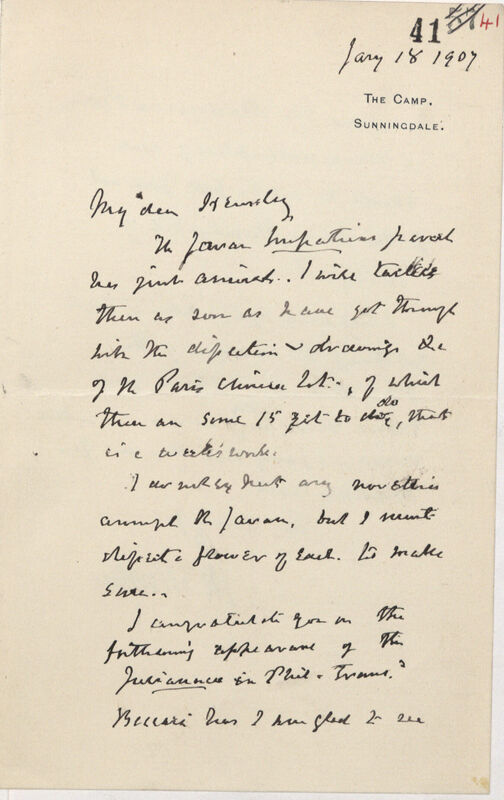 41 41
Jany 18 1907
THE CAMP,
SUNNINGDALE.
My dear Hemsley
The Javan Impatiens parcel
has just arrived.. I will tackle
them as soon as I have got through
with the dissection & drawings &c
of the Paris Chinese lot.., of which
there are some 15 yet to do, that
is a week's work.
I do not expect any novelties
amongst the Javan, but I must
dissect a flower of each to make
sure..
I congratulate you on the
forthcoming appearance of the
Julianaceae in Phil. Trans.
Beccari has I am glad to see